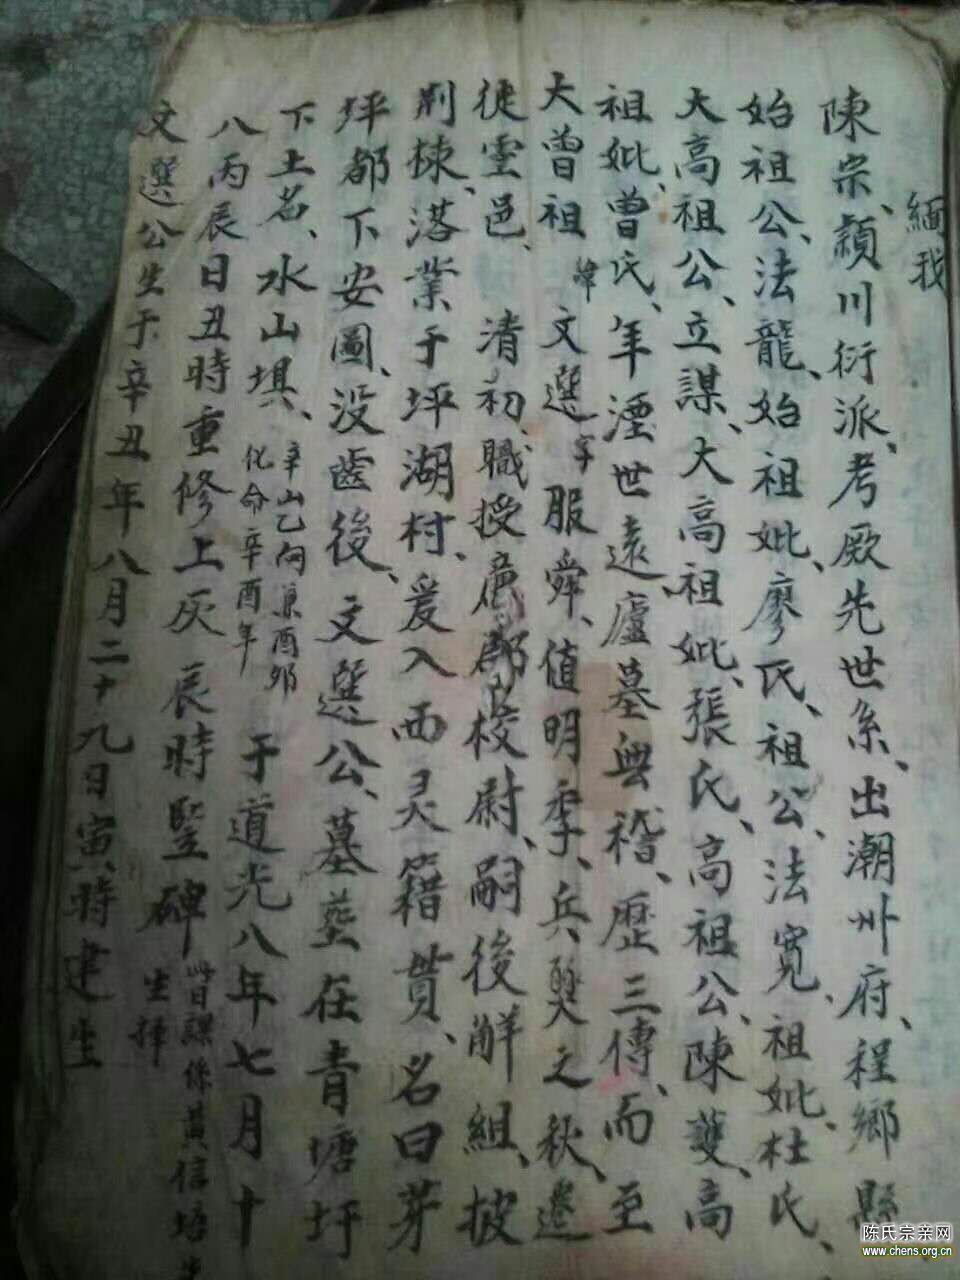 緬我
陳宗、穎川衍派、考厥先世系、出潮州府、程鄉縣
始祖公、法龍、始祖妣、廖氏、祖公、法寬、祖妣、杜氏、
大高祖公、立謀、大高祖妣、張氏、高祖公、陳雙、高
祖妣、曾氏、年湮世遠、廬墓無稽、歷三傳、而至
大曾祖諱文選字服舜、值明季、兵燹之秋、遷
徙雲邑、清初、職授校尉、嗣後解組、披
荆棘、落業于坪湖村、爰入西灵籍貫、名曰芽
坪都下安圖、没齒後、文選公、墓塟在青塘圩
下土名、水山塭、辛山乙向兼酉卯
化命辛酉年
于道光八年七月十
八丙辰日丑時重修上灰辰時竪碑
日課係黃信培
生擇
文選公生于辛丑年八月二十九日寅時建生
陈氏宗亲网
www.chens.org.cn